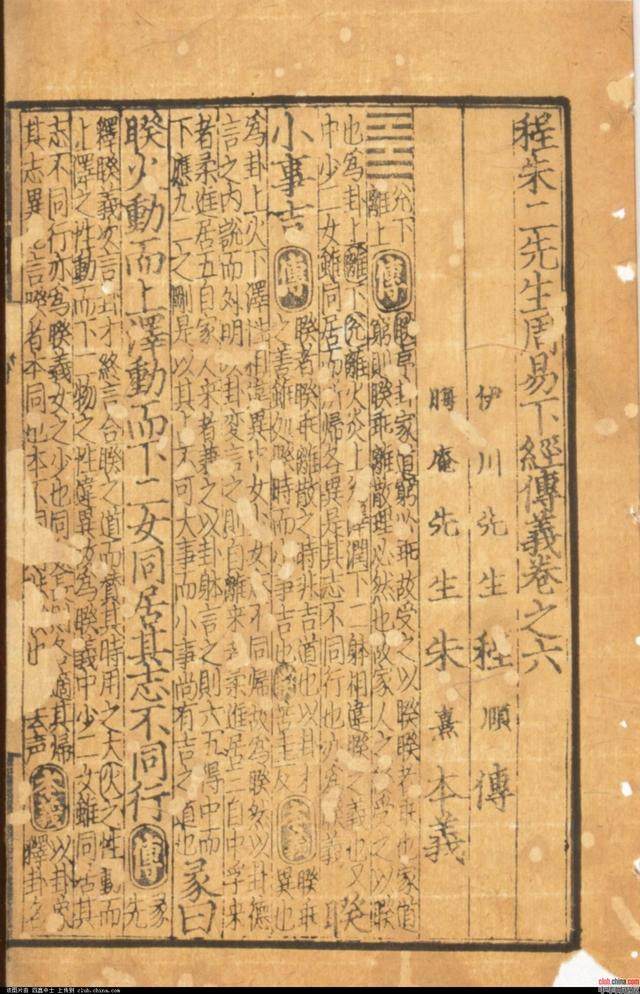 程朱二先生周易下經傳義卷之六
伊川先生程頤傳
晦庵先生朱熹本義
兌下離上 傳 睽序卦家道窮必乖故受之以睽睽者乖也家道
窮則睽乖離散理必然也故家人之後受之以睽
也為卦上離下兌離火炎上澤潤下二體相違睽之義也又
中少二女雖同居而所歸各異是其志不同行也亦為睽義
小事吉 傳 睽者睽乖離散之時非吉道也以卦才
之善雖處睽時而小事吉也 本義 睽乖異也
為卦上火下澤性相違異中女少女志不同歸故為睽然以卦德
言之內說而外明以卦變言之則自離來者柔進居三自中孚來
者柔進居五自家人來者兼之以卦體言之則六五得中而
下應九二之剛是以其占不可大事而小事尚有吉之道也 彖曰
睽火動而上澤動而下二女同居其志不同行 傳 彖先
釋睽義次言卦才終言合睽之道而贊其時用之大火之性動而
上澤之性動而下二物之性違異故為睽義中少二女雖同居其
志不同行亦為睽義女之少也同處長則各適其歸
其志異也言睽者本同也本不同則非睽也
去声 本義 以卦象
釋卦名
club.china.com